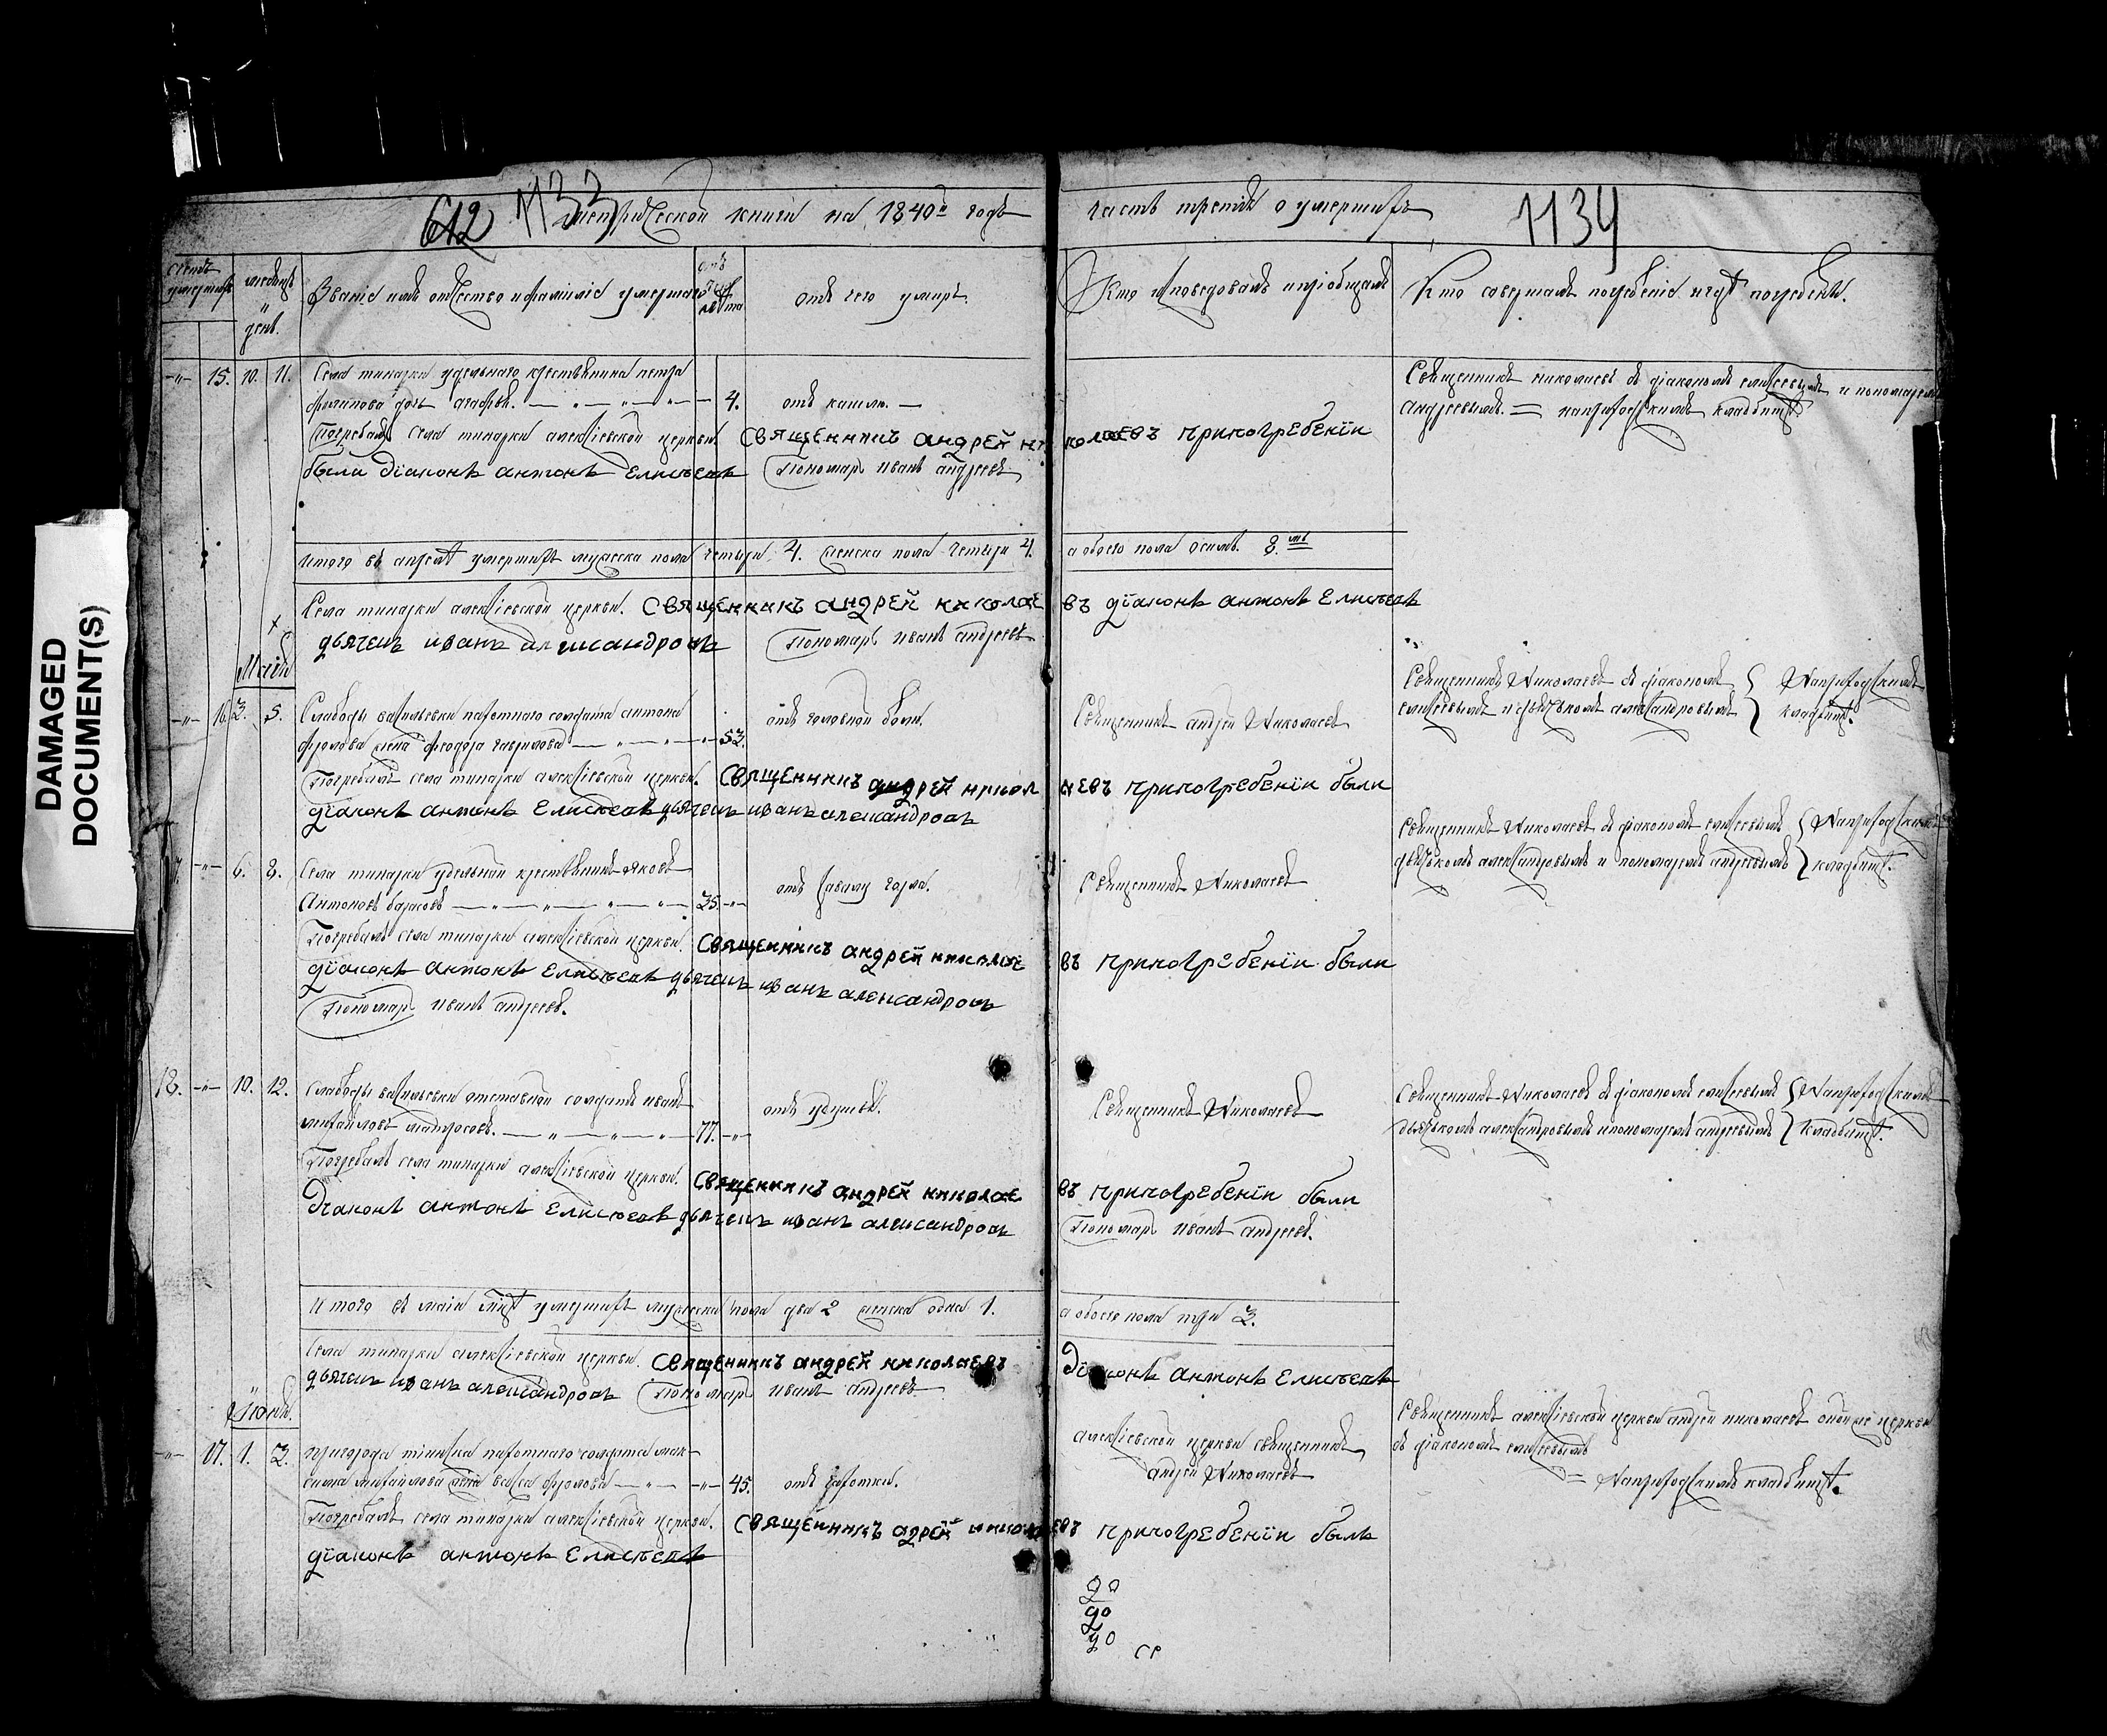 DAMAGED
DOCUMENT(S)
612 1133
метрической книги на 1840й годъ
часть третія о умершихъ
1134
счетъ умершихъ
месяцъ и день.
Званіе имя отчество и фамиліе умершаго
лѣта
отъ чего умиръ.
Кто исповедовалъ и пріобщалъ
Кто совершалъ погребеніе и гдѣ погребены.
-"- 15. 10. 11.
Села тинарки удельнаго крестьянина петра
филипова дочь агафья. — " — " — " — 4.
отъ кашлю. —
Священникъ николаевъ съ діакономъ елисеевымъ и пономаремъ
андреевымъ = на приходскимъ кладбищѣ
Погребалъ села тинарки алексіевской церкви. Священникъ андрей николаевъ при погребеніи
были діаконъ антонъ Елисѣевъ Пономарь иванъ андреевъ
итого въ апрелѣ умершихъ мужеска пола четыри 4. женска пола четыри 4. а обоего пола осимь. 8.мь
Села тинарки алексіевской церкви. Священникъ андрей николаевъ діаконъ антонъ Елисѣевъ
дьячекъ иванъ александровъ Пономарь иванъ андреевъ
Маія
-"- 16. 3. 5.
Слабоды васильевки пахотнаго солдата антона
фролова жена феодора гаврилова — " — " — 53.
отъ головной боли.
Священникъ андрей Николаевъ
Священникъ Николаевъ съ діакономъ
елисеевымъ и дьячькомъ александровымъ
На приходскимъ
кладбищѣ.
Погребалъ села тинарки алексіевской церкви. Священникъ андрей николаевъ при погребеніи были
діаконъ антонъ Елисѣевъ дьячекъ иванъ александровъ
17. -"- 6. 8.
Села тинарки удельной крестьянинъ яковъ
Антоновъ барасовъ — " — " — " — 35. -"-
отъ завалу горла.
Священникъ Николаевъ
Священникъ Николаевъ съ діакономъ елисеевымъ
дьячькомъ александровымъ и пономаремъ андреевымъ
На приходскимъ
кладбищѣ.
Погребалъ села тинарки алексіевской церкви. Священникъ андрей николаевъ при погребеніи были
діаконъ антонъ Елисѣевъ дьячекъ иванъ александровъ
Пономарь иванъ андреевъ.
18. -"- 10. 12.
Слабоды васильевки отставной солдатъ иванъ
михайловъ матросовъ. — " — " — 77. -"-
Священникъ Николаевъ
Священникъ Николаевъ съ діакономъ елисеевымъ
дьячькомъ александровымъ и пономаремъ андреевымъ
На приходскимъ
кладбищѣ.
Погребалъ села тинарки алексіевской церкви. Священникъ андрей николаевъ при погребеніи были
Діаконъ антонъ Елисѣевъ дьячекъ иванъ александровъ Пономарь иванъ андреевъ.
Итого въ маіи умершихъ мужеска пола два 2 женска одна 1. а обоего пола три 3.
Села тинарки алексіевской церкви. Священникъ андрей николаевъ Діаконъ антонъ Елисѣевъ
дьячекъ иванъ александровъ Пономарь иванъ андреевъ
Іюня.
-"- 17. 1. 3.
пригорода тіинска пахотнаго солдата мак-
сима михайлова жена васса фролова — " — 45.
отъ чахотки.
алексіевской церкви священникъ
андрей Николаевъ
Священникъ алексіевской церкви андрей николаевъ церкви
съ діакономъ елисеевымъ
= На приходскимъ кладбищѣ.
Погребалъ села тинарки алексіевской церкви. Священникъ адрей николаевъ при погребеніи былъ
діаконъ антонъ Елисѣевъ